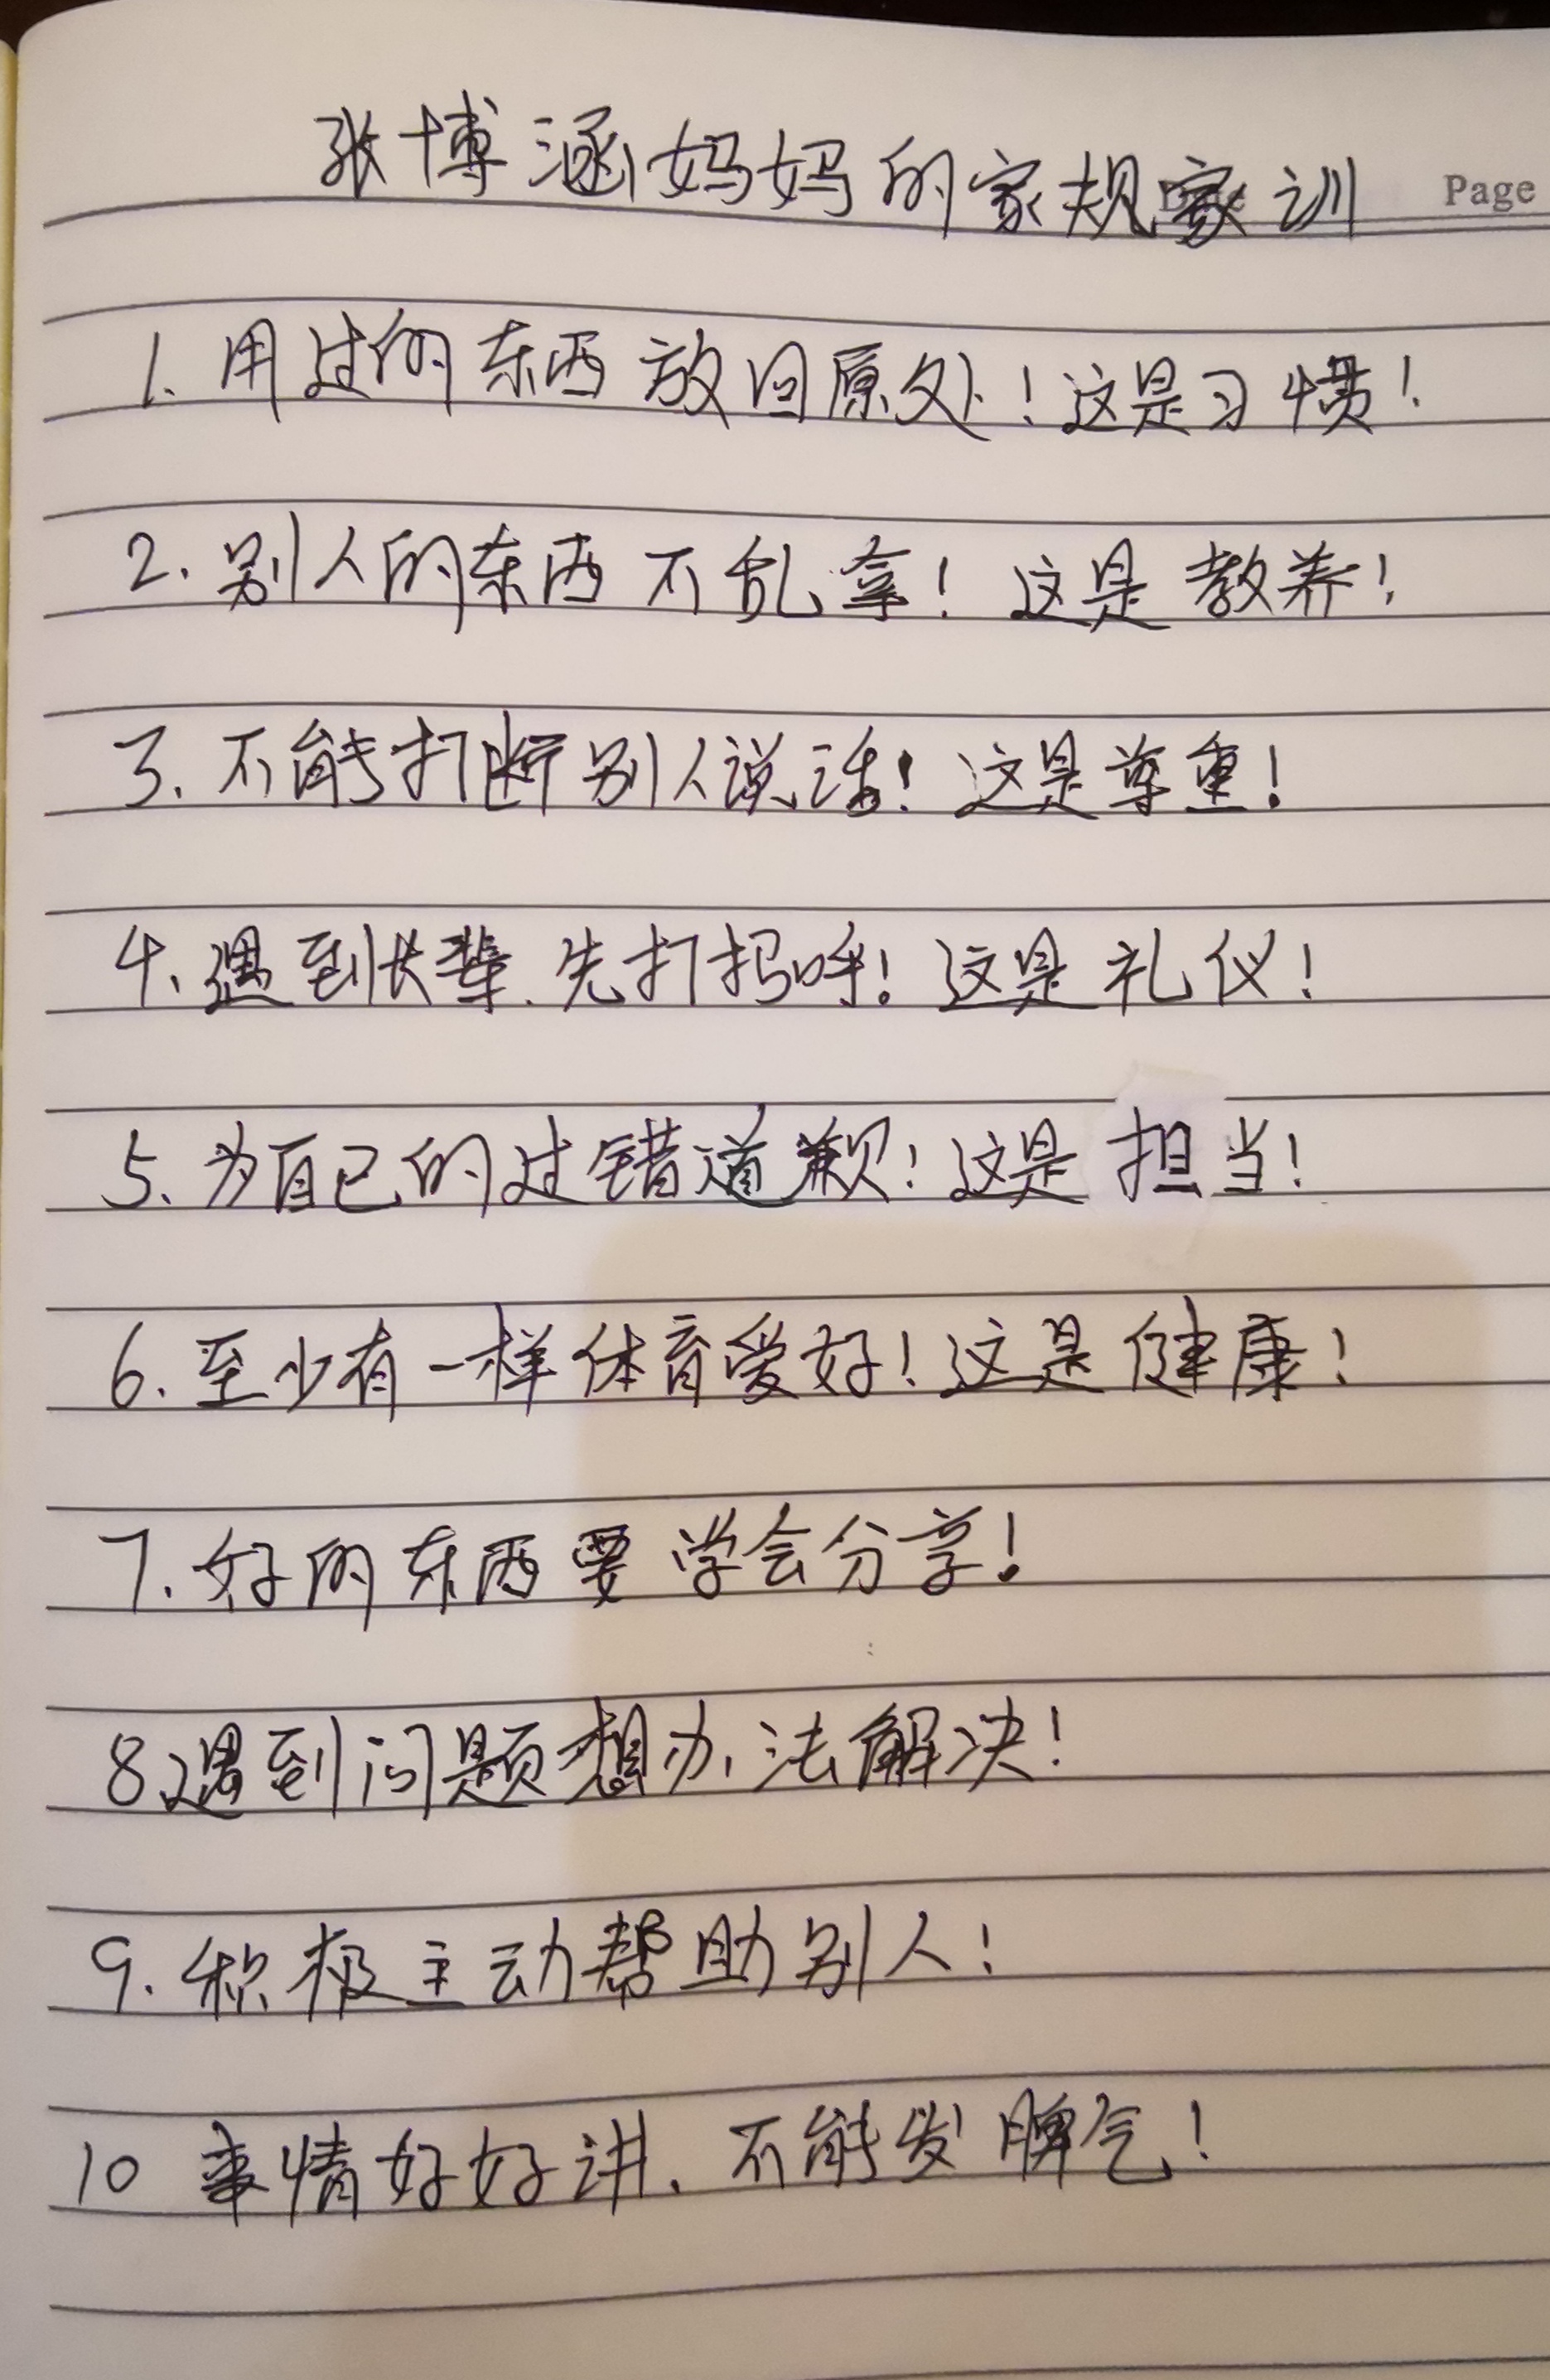 张博涵妈妈的家规家训
Page
1. 用过的东西放回原处！这是习惯！
2. 别人的东西不乱拿！这是教养！
3. 不能打断别人说话！这是尊重！
4. 遇到长辈、先打招呼！这是礼仪！
5. 为自己的过错道歉！这是担当！
6. 至少有一样体育爱好！这是健康！
7. 好的东西要学会分享！
8.遇到问题想办法解决！
9. 积极主动帮助别人！
10 事情好好讲、不能发脾气！